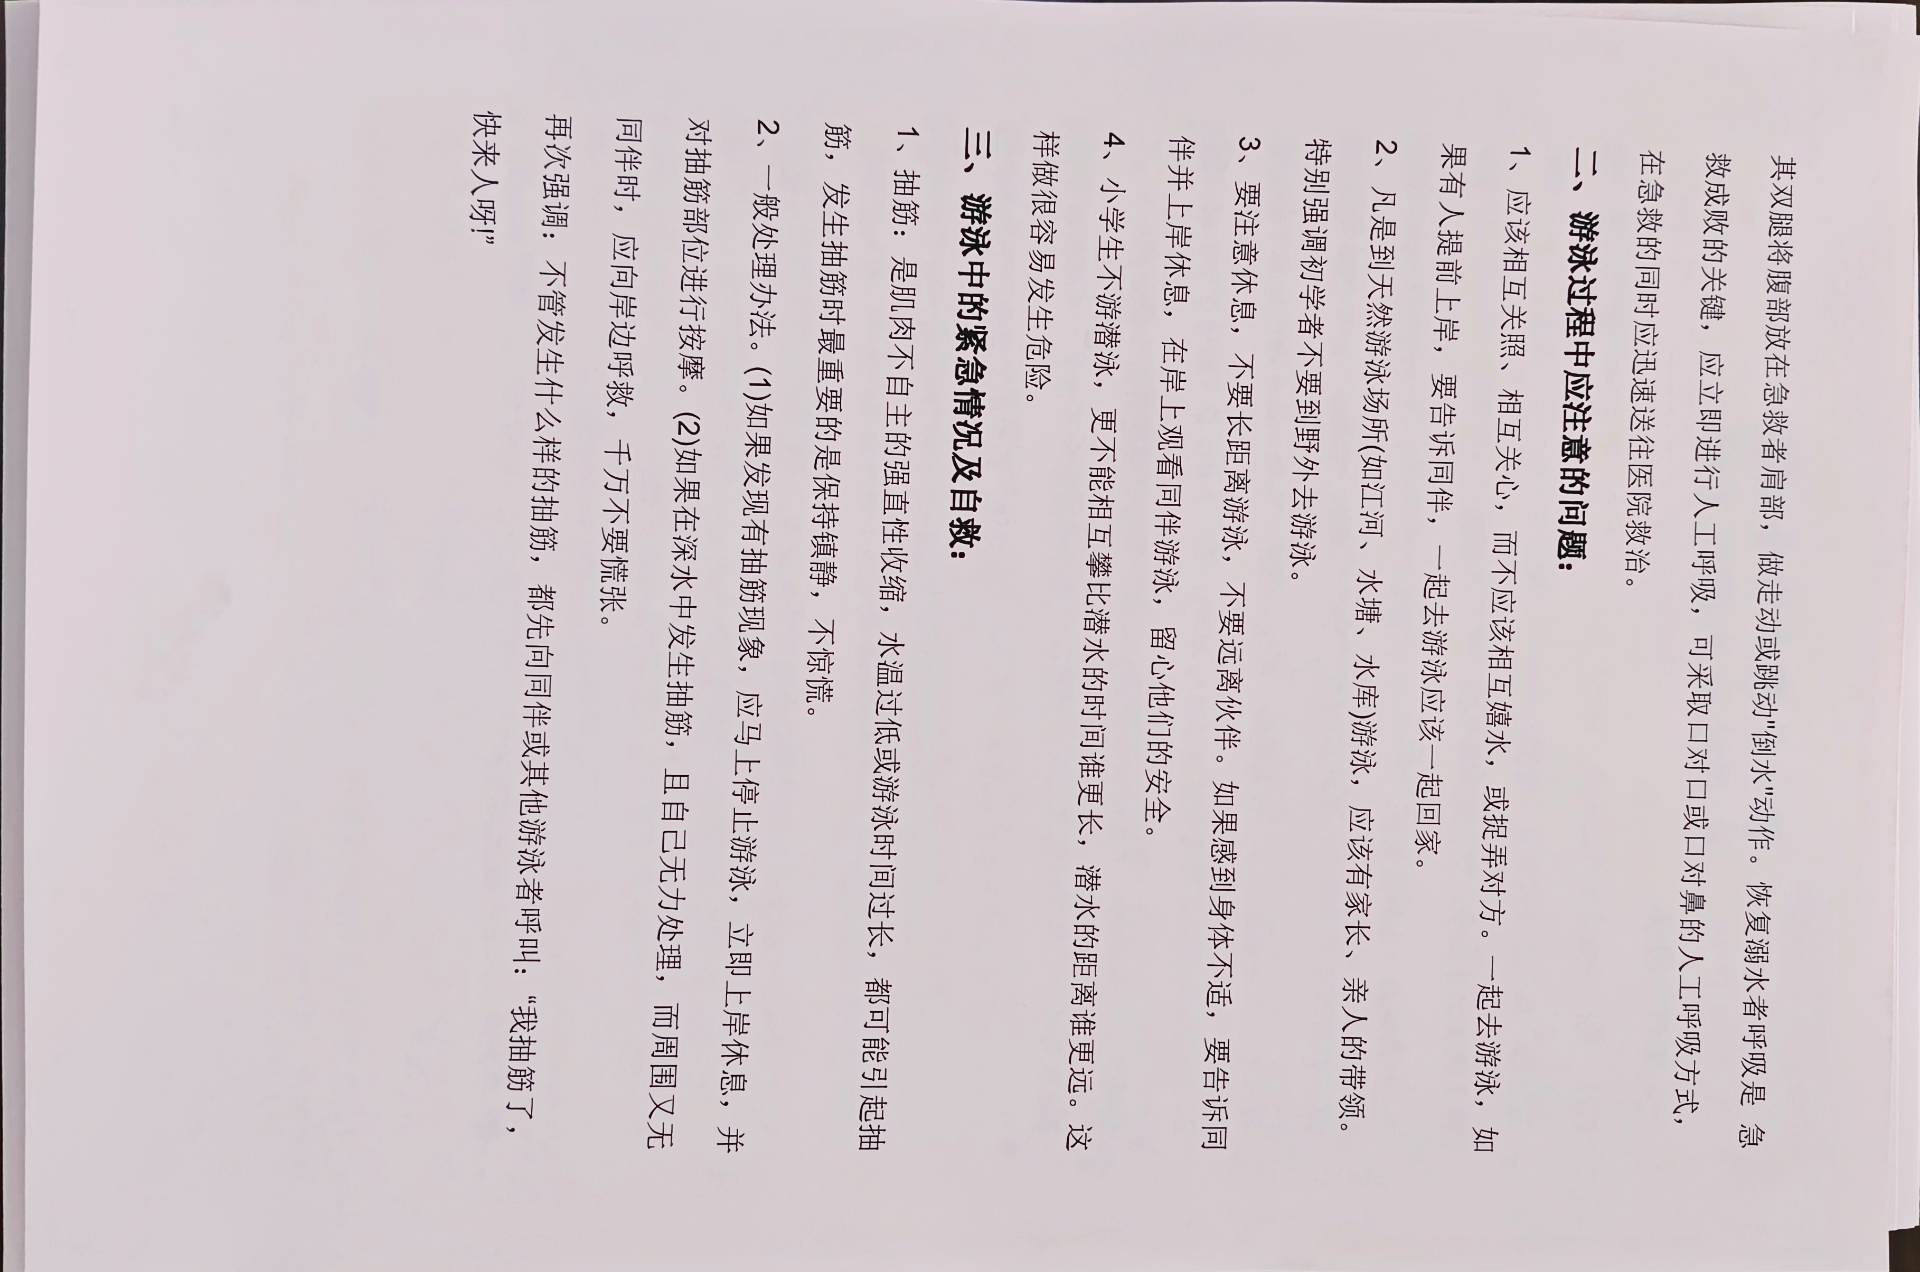 其双腿将腹部放在急救者肩部，做走动或跳动"倒水"动作。恢复溺水者呼吸是 急
救成败的关键，应立即进行人工呼吸，可采取口对口或口对鼻的人工呼吸方式，
在急救的同时应迅速送往医院救治。
二、游泳过程中应注意的问题：
1、应该相互关照、相互关心，而不应该相互嬉水，或捉弄对方。一起去游泳，如
果有人提前上岸，要告诉同伴，一起去游泳应该一起回家。
2、凡是到天然游泳场所(如江河、水塘、水库)游泳，应该有家长、亲人的带领。
特别强调初学者不要到野外去游泳。
3、要注意休息，不要长距离游泳，不要远离伙伴。如果感到身体不适，要告诉同
伴并上岸休息，在岸上观看同伴游泳，留心他们的安全。
4、小学生不游潜泳，更不能相互攀比潜水的时间谁更长，潜水的距离谁更远。这
样做很容易发生危险。
三、游泳中的紧急情况及自救：
1、抽筋：是肌肉不自主的强直性收缩，水温过低或游泳时间过长，都可能引起抽
筋，发生抽筋时最重要的是保持镇静，不惊慌。
2、一般处理办法。(1)如果发现有抽筋现象，应马上停止游泳，立即上岸休息，并
对抽筋部位进行按摩。(2)如果在深水中发生抽筋，且自己无力处理，而周围又无
同伴时，应向岸边呼救，千万不要慌张。
再次强调：不管发生什么样的抽筋，都先向同伴或其他游泳者呼叫：“我抽筋了，
快来人呀!”